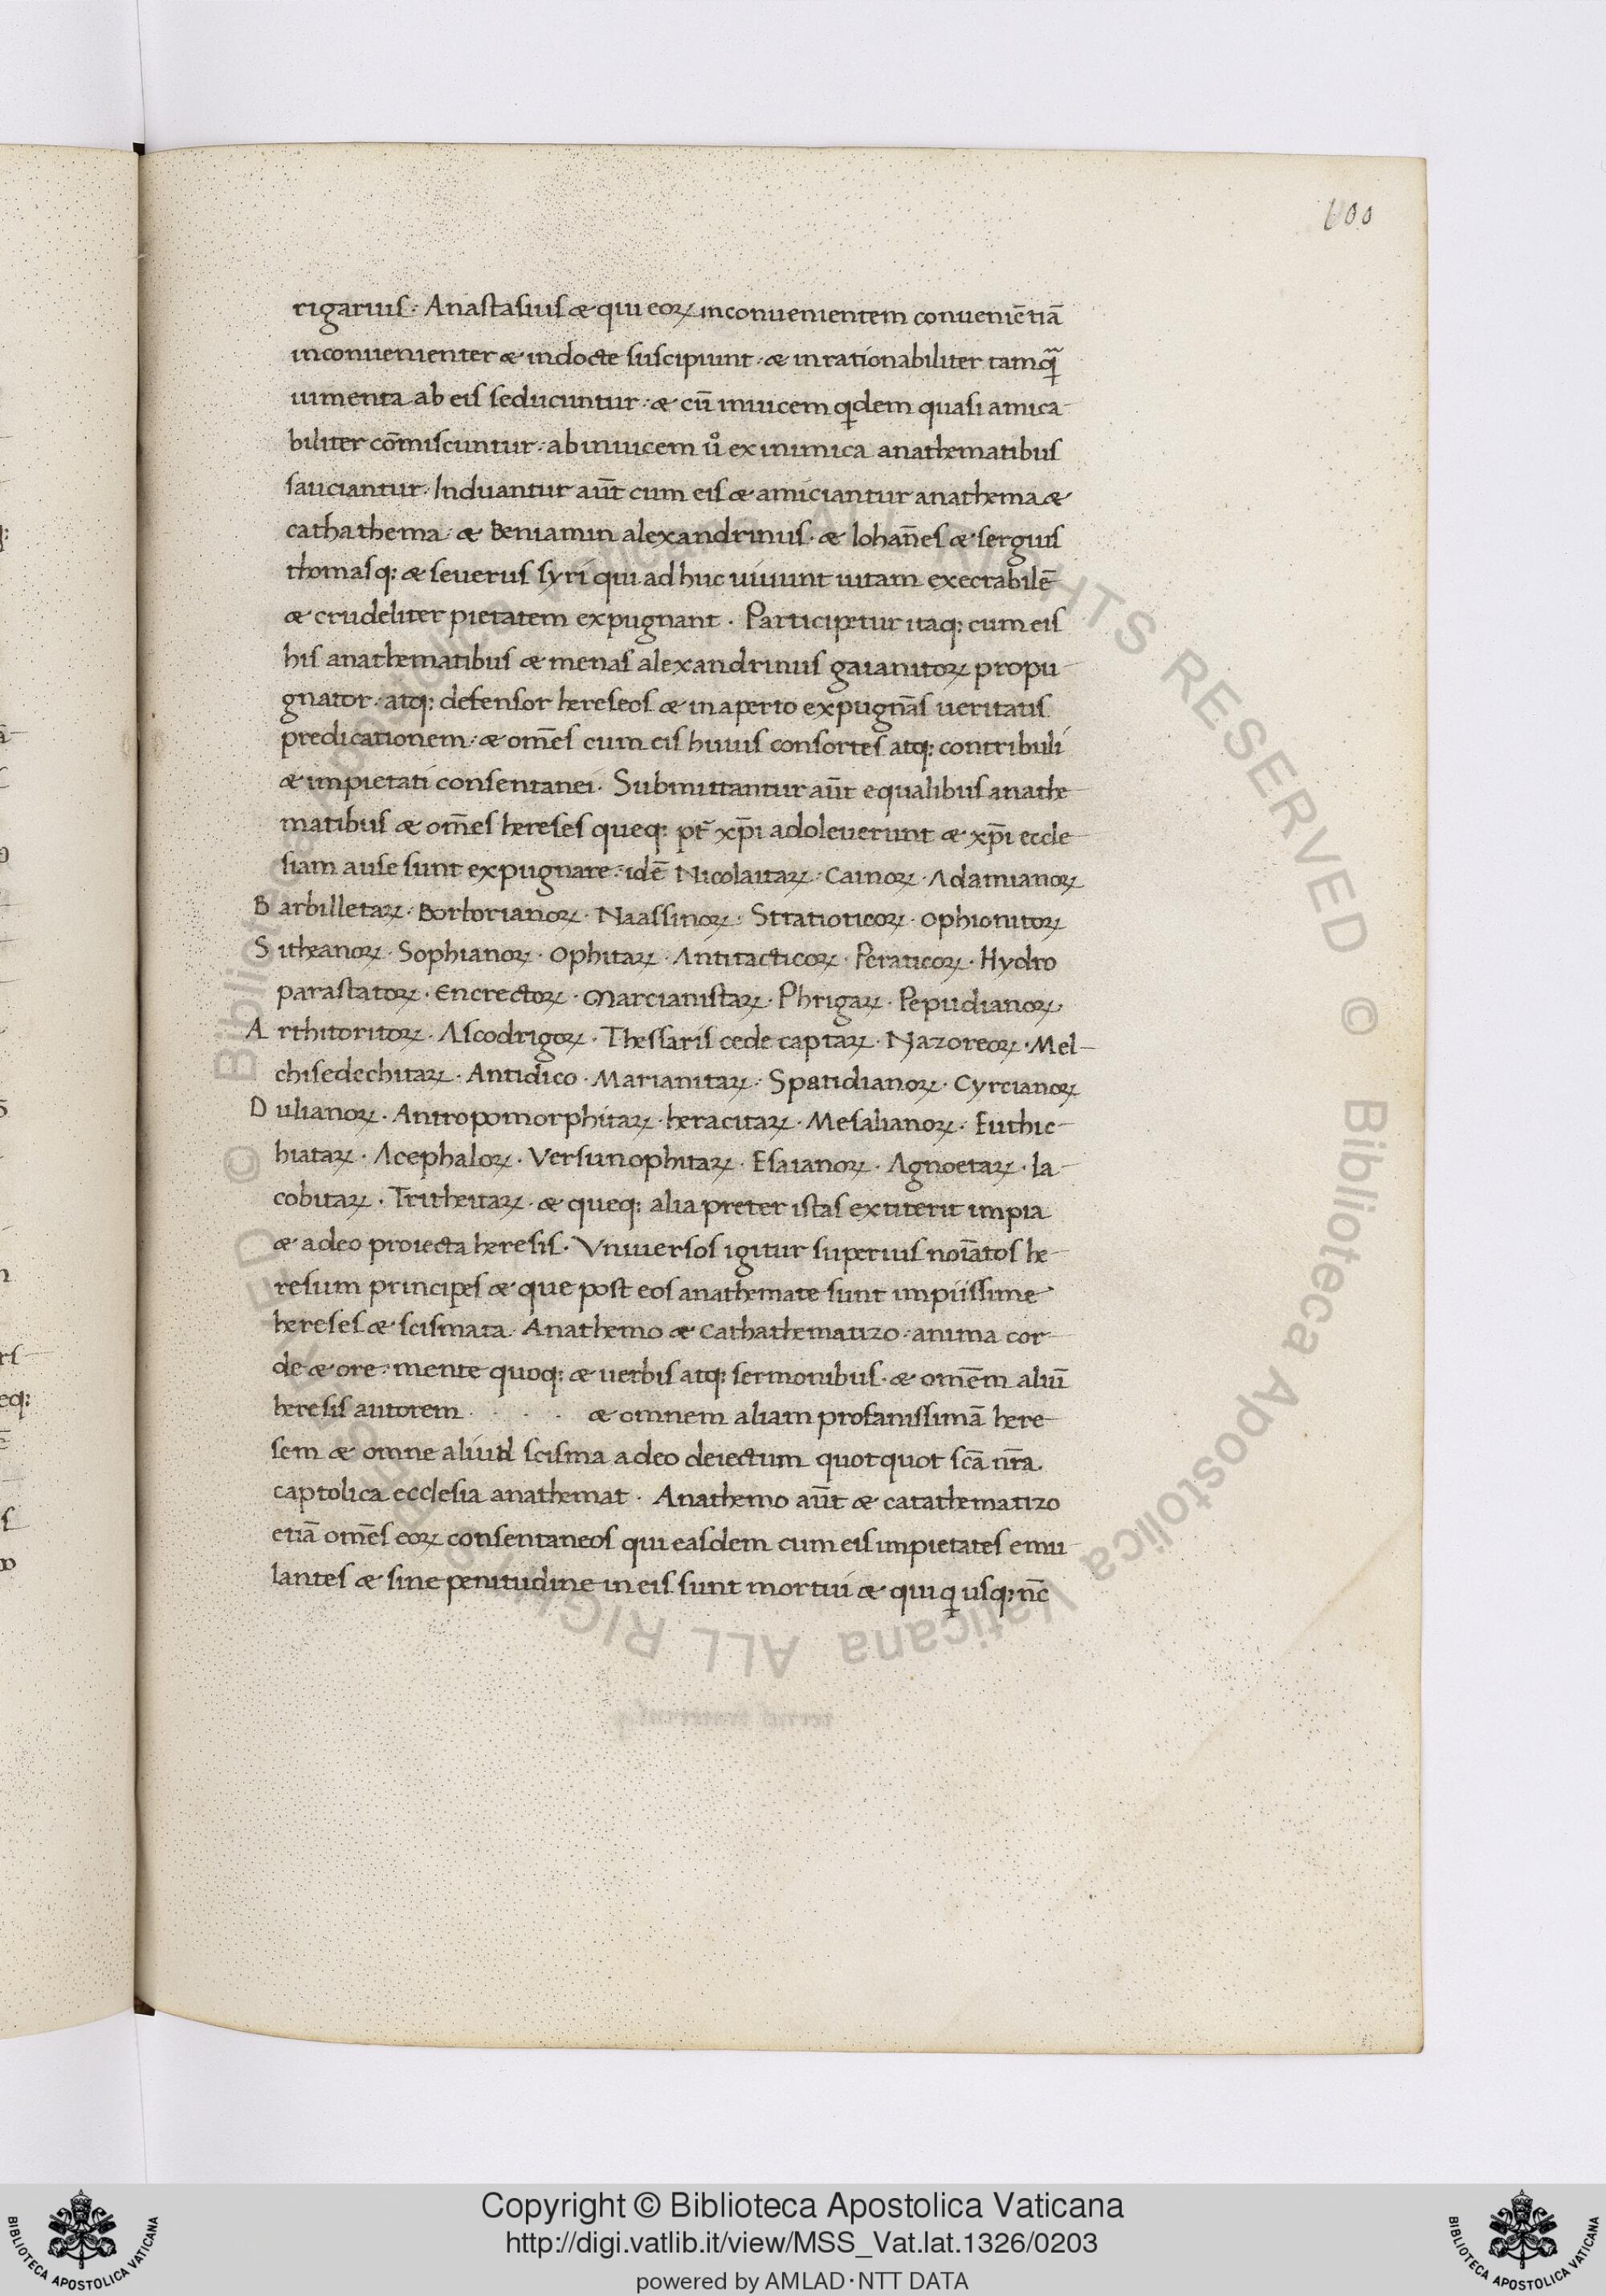 100
rigarius· Anastasius æ qui eoꝝ inconuenientem conueniētiā
inconuenienter æ indocte suscipiunt· æ inrationabiliter tamq̄
iumenta ab eis seducuntur· æ cū inuicem qdem quasi amica
biliter cōmiscuntur· abinuicem ů ex inimica anathematibus
sauciantur· Induantur aūt cum eis æ amiciantur anathema æ
cathathema· æ Beniamin alexandrinus· æ Iohan̄es æ sergius
thomasq: æ seuerus syri qui ad huc uiuunt uitam execrabilē
æ crudeliter pietatem expugnant · Participetur itaq: cum eis
his anathematibus æ menas alexandrinus gaianitoꝝ propu
gnator· atq: defensor hereseos æ in aperto expugnās ueritatis
predicationem· æ om̄es cum eis huius consortes atq: contribuli
æ impietati consentanei· Submittantur aūt equalibus anathe
matibus æ om̄es hereses queq: pt̄ xp̄i adoleuerunt æ xp̄i eccle
siam ause sunt expugnare· idē Nicolaitaꝝ· Cainoꝝ· Adamianoꝝ
Barbilletaꝝ· Borborianoꝝ· Naassinoꝝ· Stratioticoꝝ· Ophionitoꝝ
Sitheanoꝝ· Sophianoꝝ· Ophitaꝝ· Antitacticoꝝ· Peraticoꝝ· Hydro
parastatoꝝ· Encrectoꝝ· Marcianistaꝝ· Phrigaꝝ· Pepudianoꝝ·
Arthitoritoꝝ· Ascodrigoꝝ· Thessaris cede captaꝝ· Nazoreoꝝ· Mel
chisedechitaꝝ· Antidico· Marianitaꝝ· Spatidianoꝝ· Cyrcianoꝝ
Dulianoꝝ· Antropomorphitaꝝ· heracitaꝝ· Mesalianoꝝ· Euthic
hiataꝝ· Acephaloꝝ· Versunophitaꝝ· Esaianoꝝ· Agnoetaꝝ· Ia
cobitaꝝ· Tritheitaꝝ· æ queq: alia preter istas extiterit impia
æ adeo proiecta heresis· Vniuersos igitur superius noīatos he
resum principes æ que post eos anathemate sunt impiissime
hereses æ scismata· Anathemo æ Cathathematizo· anima cor
de æ ore· mente quoq: æ uerbis atq: sermonibus· æ om̄em aliū
heresis autorem · · · · æ omnem aliam profanissimā here
sem æ omne aliud scisma adeo deiectum quotquot scā nr̄a
captolica ecclesia anathemat · Anathemo aūt æ catathematizo
etiā om̄es eoꝝ consentaneos qui easdem cum eis impietates emu
lantes æ sine penitudine in eis sunt mortui æ quiq usq: nc̄
© Biblioteca Apostolica Vaticana ALL RIGHTS RESERVED © Biblioteca Apostolica Vaticana ALL RIGHTS RESERVED
Copyright © Biblioteca Apostolica Vaticana
http://digi.vatlib.it/view/MSS_Vat.lat.1326/0203
powered by AMLAD·NTT DATA
BIBLIOTECA APOSTOLICA VATICANA
BIBLIOTECA APOSTOLICA VATICANA